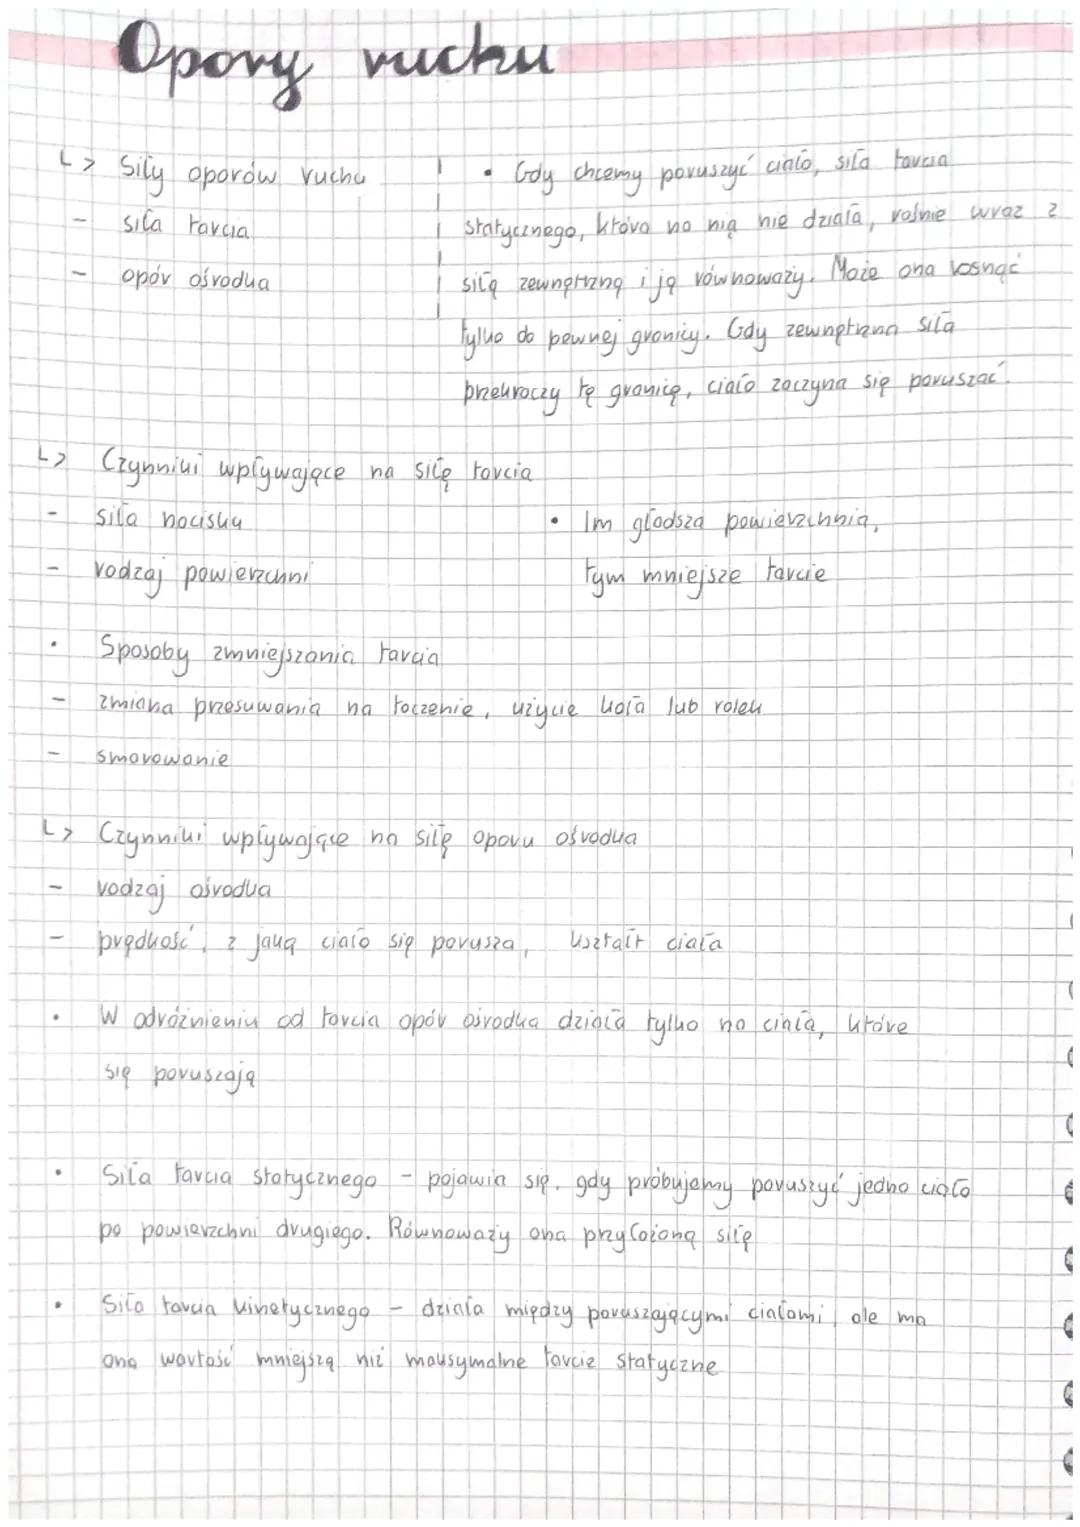 Opory ruchu
↳ Siły oporów ruchu
- siła tarcia
- opór ośrodka
• Gdy chcemy poruszyć ciało, siła tarcia
statycznego, która na nią nie działa, rośnie wraz z
siłą zewnętrzną i ją równoważy. Może ona rosnąć
tylko do pewnej granicy. Gdy zewnętrzna siła
przekroczy tę granicę, ciało zaczyna się poruszać.
↳ Czynniki wpływające na siłę tarcia
- siła nacisku
- rodzaj powierzchni
• Im gładsza powierzchnia,
tym mniejsze tarcie
• Sposoby zmniejszania tarcia
- zmiana przesuwania na toczenie, użycie koła lub rolek
- smarowanie
↳ Czynniki wpływające na siłę oporu ośrodka
- rodzaj ośrodka
- prędkość, z jaką ciało się porusza, kształt ciała
• W odróżnieniu od tarcia opór ośrodka działa tylko na ciała, które
się poruszają
• Siła tarcia statycznego - pojawia się, gdy próbujemy poruszyć jedno ciało
po powierzchni drugiego. Równoważy ona przyłożoną siłę
• Siła tarcia kinetycznego - działa między poruszającymi ciałami, ale ma
ona wartość mniejszą niż maksymalne tarcie statyczne